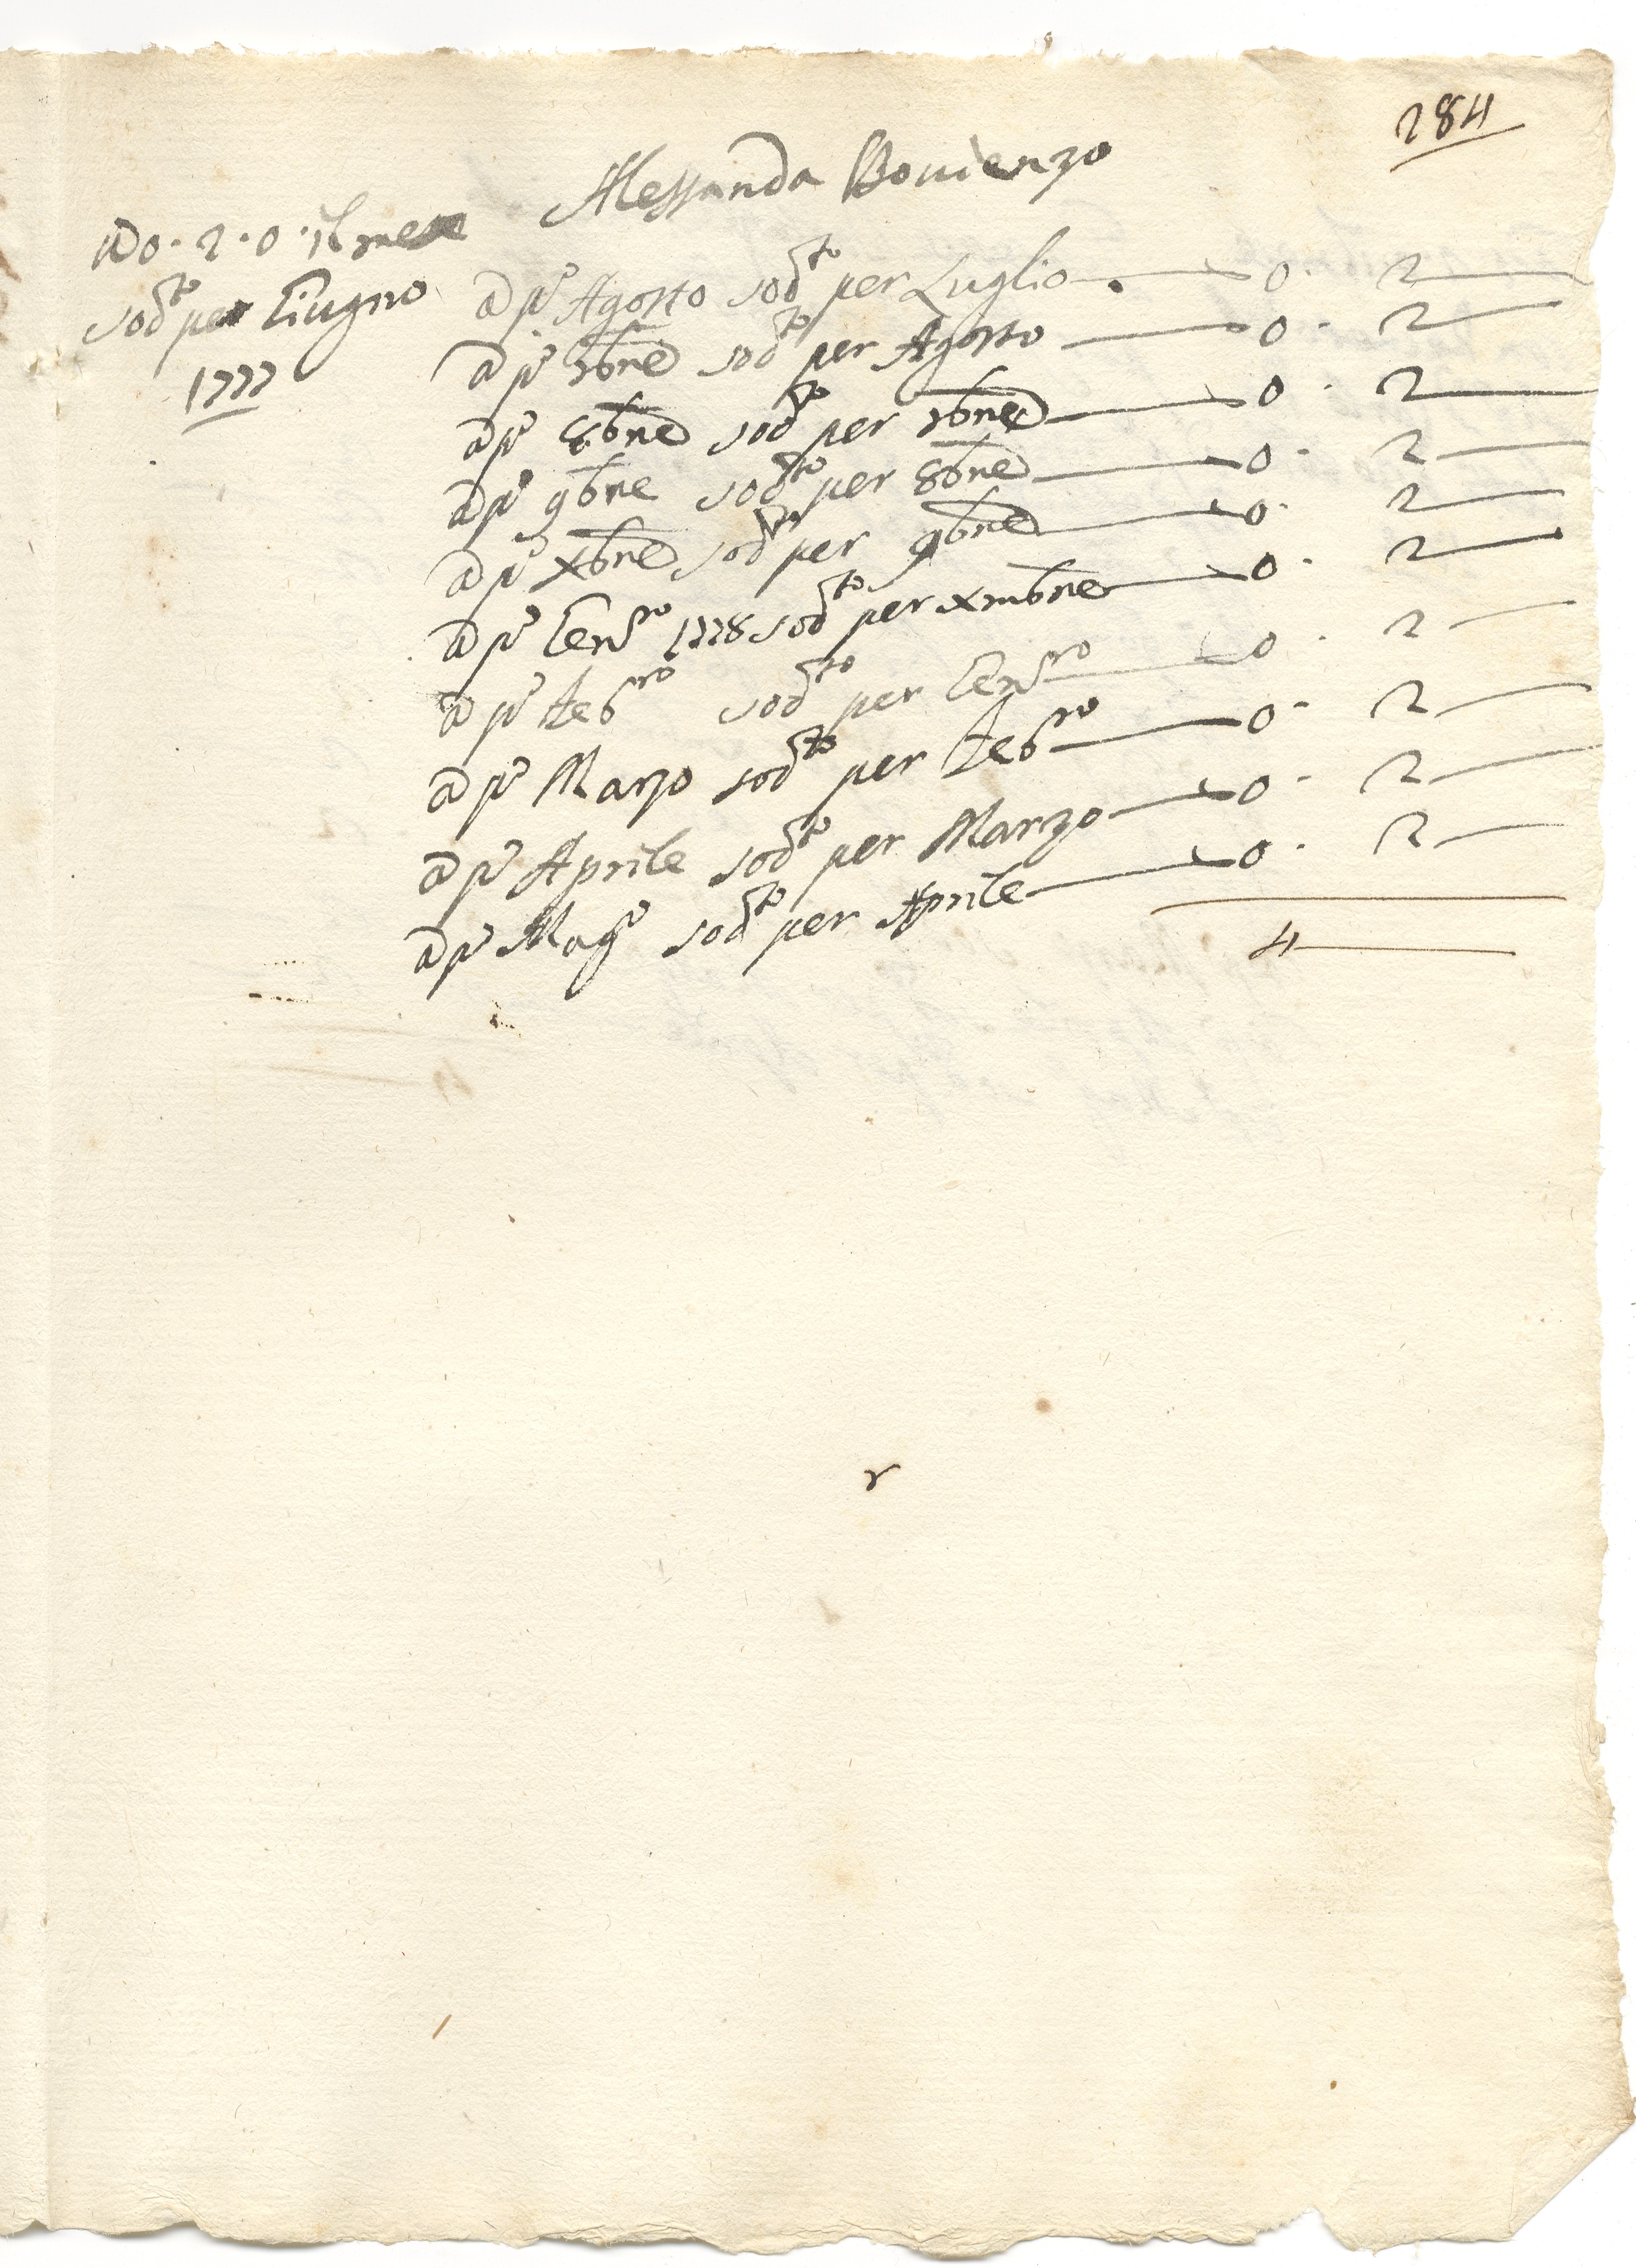 284
Alessanda Bovienzo
a D 0. 2. 0. il mese
sod.to per Giugno
1777
a p.o Agosto sod.to per Luglio 0. 2
a p.o 7bre sod.to per Agosto 0. 2
a p.o 8bre sod.to per 7bre 0. 2
a p.o 9bre sod.to per 8bre 0. 2
a p.o Xbre sod.to per 9bre 0. 2
a p.o Gen.ro 1778 sod.to per Xmbre 0. 2
a p.o Feb.ro sod.to per Gen.ro 0. 2
a p.o Marzo sod.to per Feb.ro 0. 2
a p.o Aprile sod.to per Marzo 0. 2
a p.o Mag.o sod.to per Aprile 0. 2
4